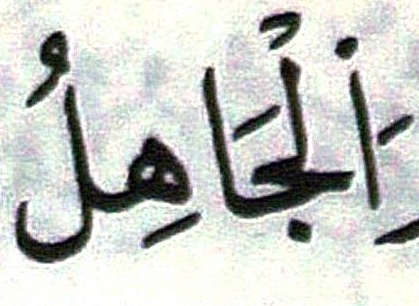 اَلْجَاهِلُ